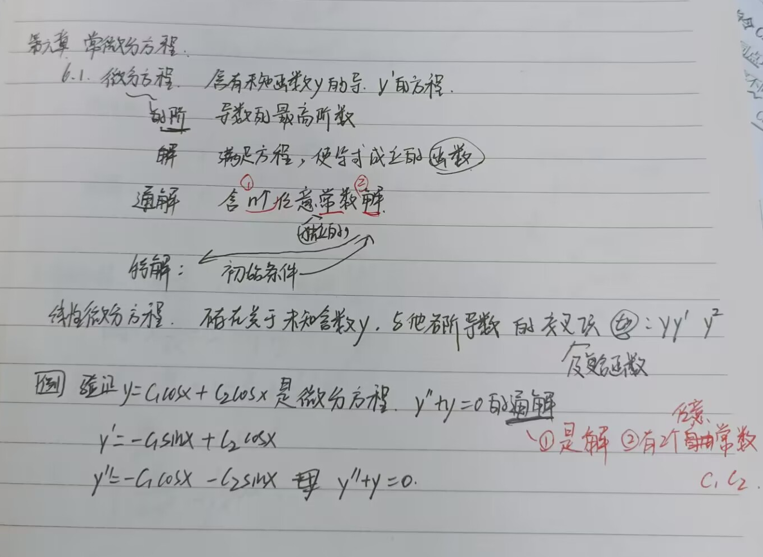 第六章 常微分方程.
6.1. 微分方程. 含有未知函数y的导. y'的方程.
的阶 导数的最高阶数
解 满足方程,使等式成立的函数
① ②
通解 含n个任意常数解
独立的
特解: 初始条件
线性微分方程. 存在关于未知含数y,与他各阶导数的交叉项 如: yy' y²
复合函数
例 验证y=C₁cosx+C₂cosx是微分方程. y''+y=0的通解
y'=-C₁sinx+C₂cosx ①是解 ②有2个任意常数
y''=-C₁cosx-C₂sinx y''+y=0. C₁ C₂.